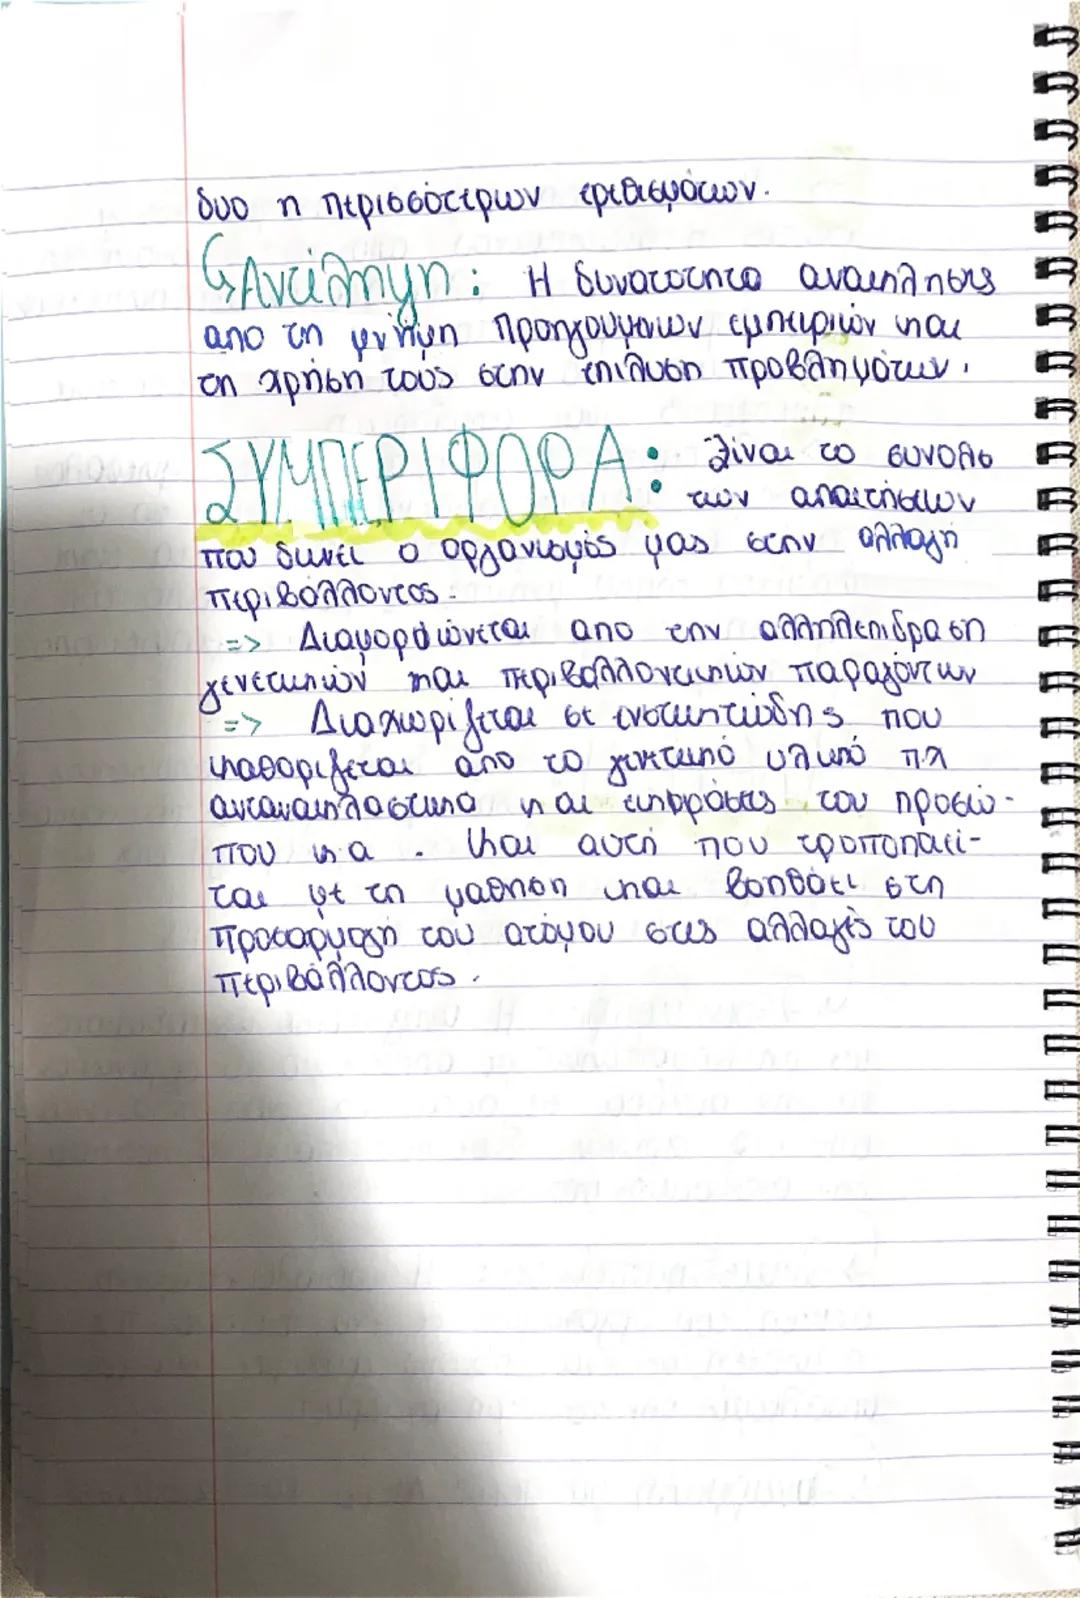 δυο η περισσότερων ερεθισμάτων.
↳Αντίληψη: Η δυνατότητα ανακλησης
απο τη μνήμη προηγουμενων εμπειριών και
τη χρήση τους στην επιλυση προβλημάτων.
ΣΥΜΠΕΡΙΦΟΡΑ: Είναι το συνολο
των απαιτήσεων
που δινει ο οργανισμός μας στην αλλαγή
περιβάλλοντος.
=> Διαμορφώνεται απο την αλληλεπιδραση
γενετικών και περιβαλλοντικών παραγόντων
=> Διαχωρίζεται σε ενστικτώδης που
καθορίζεται απο το γενετικό υλικό πχ
αντανακλαστικα και εκφράσεις του προσώ-
που κ α . Και αυτή που τροποποιεί-
ται με τη μαθηση και βοηθάει στη
προσαρμογή του ατόμου στις αλλαγές του
περιβάλλοντος.